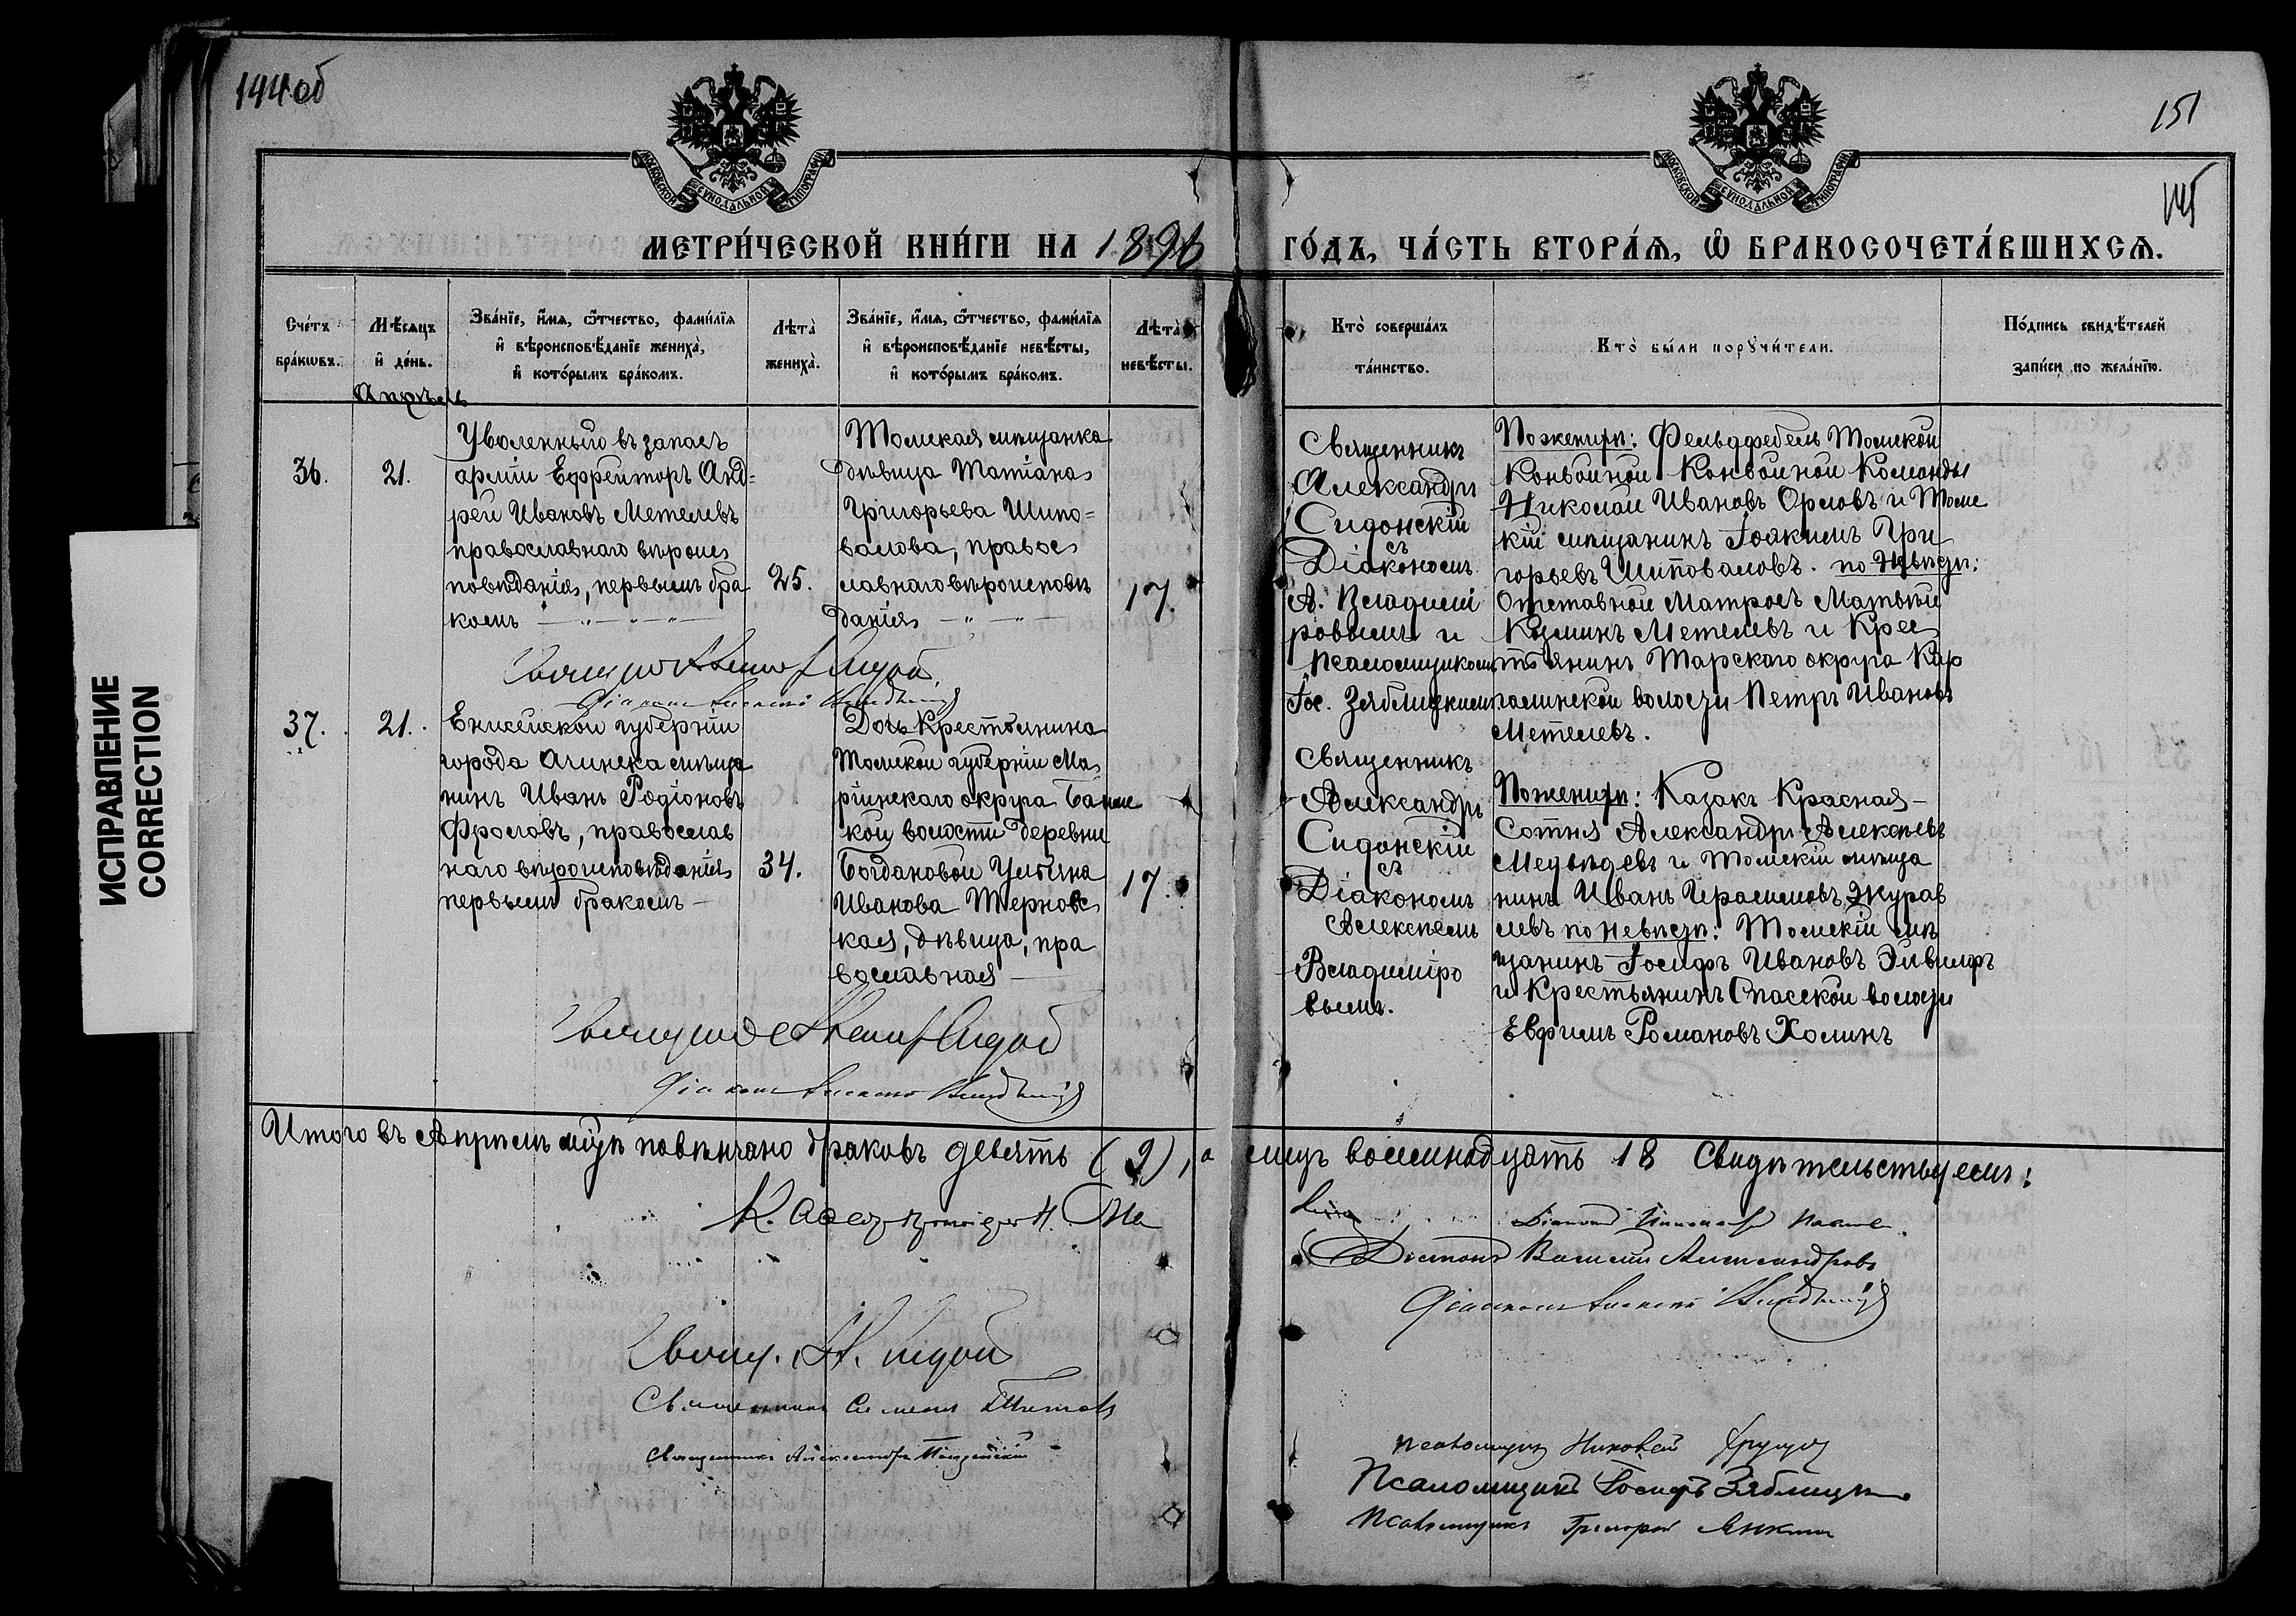 144 об
151
МОСКОВСКОЙ СѴНОДАЛЬНОЙ ТИПОГРАФІИ
МОСКОВСКОЙ СѴНОДАЛЬНОЙ ТИПОГРАФІИ
МЕТРИ́ЧЕСКОЙ КНИ́ГИ НА 1896
ГО́ДЪ, ЧА́СТЬ ВТОРА́Ѧ, Ѽ БРАКОСОЧЕТА́ВШИХСѦ.
Сче́тъ
бра́кѡвъ.
Мѣ́сѧцъ
и҆ де́нь.
Апрѣль
Зва́нїе, и҆́мѧ, ѻ҆́тчество, фами́лїѧ
и҆ вѣроисповѣ́данїе жениха̀,
и҆ кото́рымъ бра́комъ.
Лѣта̀
жениха̀.
Зва́нїе, и҆́мѧ, ѻ҆́тчество, фами́лїѧ
и҆ вѣроисповѣ́данїе невѣ́сты,
и҆ кото́рымъ бра́комъ.
Лѣта̀
невѣ́сты.
Кто̀ соверша́лъ
та́инство.
Кто̀ бы́ли порꙋчи́тели.
По́дпись свидѣ́телей
за́писи по жела́нїю.
36.
21.
Уволенный въ запасъ
арміи Ефрейторъ Анд=
рей Ивановъ Метелевъ
православнаго вѣроис
повѣданія, первымъ бра
комъ
25.
Томская мѣщанка
дѣвица Татіана
Григорьева Шипо=
валова, правос
лавнаго вѣроисповѣ
данія
17.
Священникъ
Александръ
Сидонскій
съ
Діакономъ
А. Владимі
ровымъ и
псаломщикомъ
Іос. Зяблицкимъ
По женихѣ: Фельдфебель Томской
Конвойной Конвойной Команды
Николай Ивановъ Орловъ и Томс
кій мѣщанинъ Іоакимъ Гри
горьевъ Шиповаловъ. по невѣстѣ:
Отставной Матросъ Матвѣй
Козминъ Метелевъ и Крес
тьянинъ Тарскаго округа Кар
галинской волости Петръ Ивановъ
Метелевъ.
37.
21.
Енисейской губерніи
города Ачинска мѣща
нинъ Иванъ Родіоновъ
Фроловъ, православ
наго вѣроисповѣданія
первымъ бракомъ
34.
Дочь Крестьянина
Томской губерніи Ма
ріинскаго округа Баимс
кой волости деревни
Богдановой Уліяна
Иванова Терновс
кая, дѣвица, пра
вославная
17.
Священникъ
Александръ
Сидонскій
съ
Діакономъ
Алексѣемъ
Владиміро
вымъ.
По женихѣ: Казакъ Красная
Сотня Александръ Алексѣевъ
Медвѣдевъ и Томскій мѣща
нинъ Иванъ Герасимовъ Журав
левъ по невѣстѣ: Томскій мѣ
щанинъ Іосифъ Ивановъ
и Крестьянинъ Спасской волости
Евфимъ Романовъ Холинъ
Итого въ Апрѣлѣ мцѣ повѣнчано браковъ девять (9), а лицъ восемнадцать 18 Свидѣтельствуемъ:
Діаконъ Василій Александровъ
Свящ. А. Сидон
Священникъ Симеонъ Титовъ
Священникъ Александръ
Псаломщикъ Николай
Псаломщикъ Іосифъ Зяблицкій
Псаломщикъ Григорій
ИСПРАВЛЕНИЕ
CORRECTION